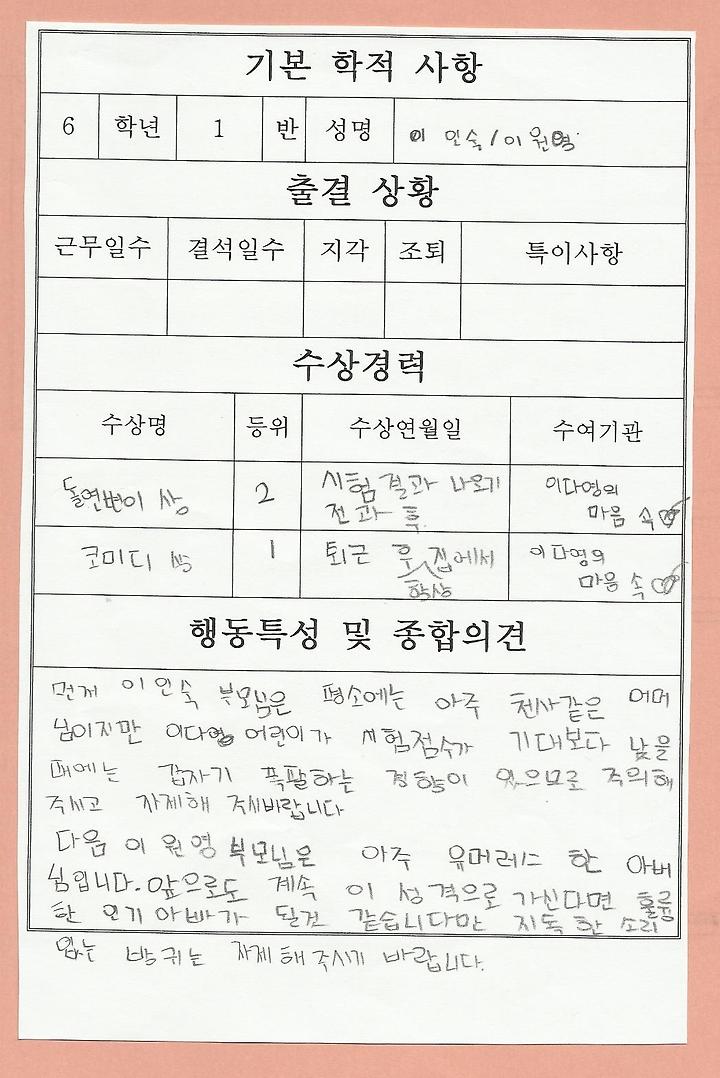 기본 학적 사항
6 학년 1 반 성명 이 인숙/이 원영
출결 상황
근무일수 결석일수 지각 조퇴 특이사항
수상경력
수상명 등위 수상연월일 수여기관
돌연변이 상 2 시험결과 나오기 이다영의
전과 후 마음 속
코미디 상 1 퇴근 후 집에서 이다영의
항상 마음 속
행동특성 및 종합의견
먼저 이인숙 부모님은 평소에는 아주 천사같은 어머
님이지만 이다영 어린이가 시험점수가 기대보다 낮을
때에는 갑자기 폭팔하는 경향이 있으므로 주의해
주시고 자제해 주시바랍니다
다음 이 원영 부모님은 아주 유머레스 한 아버
님입니다. 앞으로도 계속 이 성격으로 가신다면 훌륭
한 인기아빠가 될것 같습니다만 지독한 소리
없는 방귀는 자제해주시기 바랍니다.